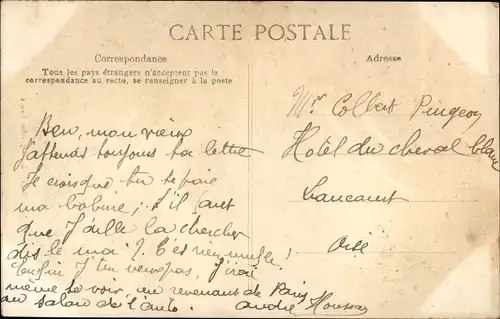 CARTE POSTALE
Correspondance
Adresse
Tous les pays étrangers n'acceptent pas la
correspondance au recto, se renseigner à la poste
Ben, mon vieux
J'attends toujours ta lettre
Je crois que tu te paie
ma bobine; s'il faut
que J'aille la chercher
dis le moi ?. T'es rien mufle!
Enfin J'en verrais pas, J'irai
même te voir, en revenant de Paris
au salon de l'auto. André
Mr Colbert Pingeon
Hotel du cheval blanc
Oise